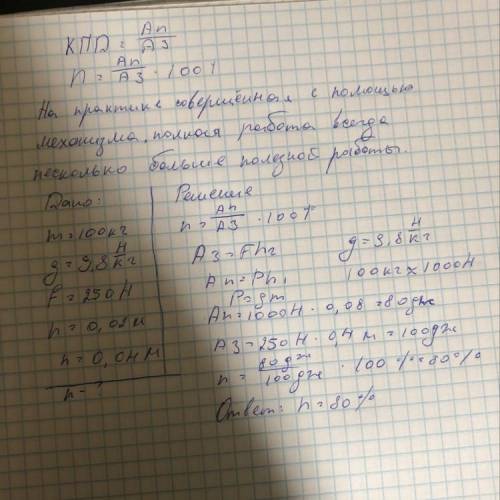 КПД = Aп/Aз
η = Aп/Aз · 100%
На практике совершённая с помощью
механизма полная работа всегда
несколько больше полезной работы.
Дано:
m = 100 кг
g = 9,8 Н/кг
F = 250 Н
h = 0,08 м
h = 0,04 м
h - ?
Решение
n = Aп/Aз · 100%
Aз = Fh₂
g = 9,8 Н/кг
Aп = Ph₁
100 кг × 1000 Н
P = gm
Aп = 1000 Н · 0,08 = 80 дж
Aз = 250 Н · 0,4 м = 100 дж
n = 80 дж/100 дж · 100% = 80%
Ответ: n = 80%